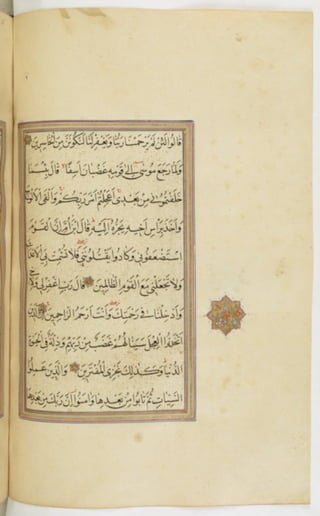 قالوا لئن لم يرحمنا ربنا ويغفر لنا لنكونن من الخاسرين
ولما رجع موسى الى قومه غضبان اسفا قال بئسما
خلفتموني من بعدي اعجلتم امر ربكم والقى الالواح
واخذ براس اخيه يجره اليه قال ابن ام ان القوم
استضعفوني وكادوا يقتلونني فلا تشمت بي الاعداء
ولا تجعلني مع القوم الظالمين قال رب اغفر لي ولاخي
وادخلنا في رحمتك وانت ارحم الراحمين ان الذين
اتخذوا العجل سينالهم غضب من ربهم وذلة في الحيوة
الدنيا وكذلك نجزي المفترين والذين عملوا
السيئات ثم تابوا من بعدها وامنوا ان ربك من بعدها